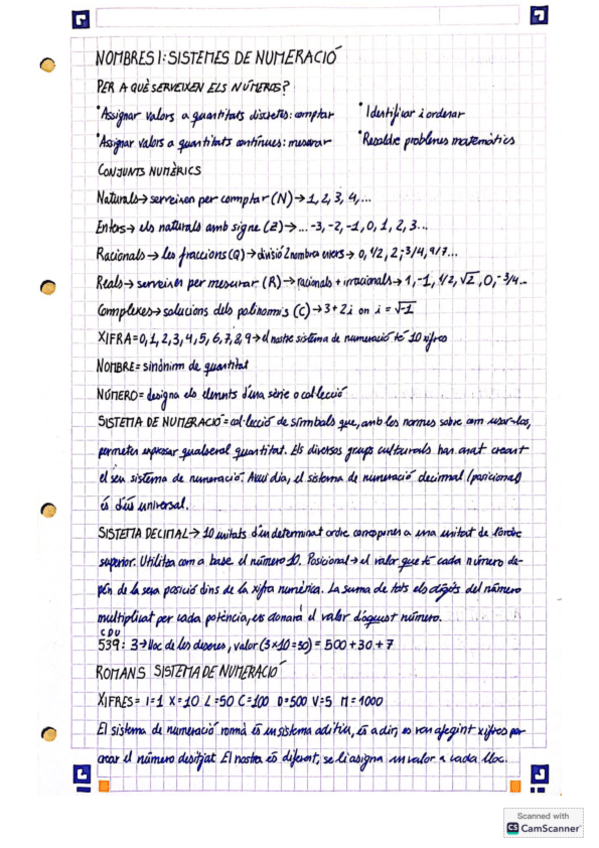 NOMBRES I: SISTEMES DE NUMERACIÓ
PER A QUÈ SERVEIXEN ELS NÚMEROS?
• Assignar valors a quantitats discretes: comptar • Identificar i ordenar
• Assignar valors a quantitats contínues: mesurar • Resoldre problemes matemàtics
CONJUNTS NUMÈRICS
Naturals → serveixen per comptar (N) → 1, 2, 3, 4, ...
Enters → els naturals amb signe (Z) → ... -3, -2, -1, 0, 1, 2, 3...
Racionals → les fraccions (Q) → divisió 2 nombres enters → 0, 1/2, 2, 3/4, 9/7...
Reals → serveixen per mesurar (R) → racionals + irracionals → 1, -1, 1/2, √2, 0, -3/4...
Complexes → solucions dels polinomis (C) → 3+2i on i = √-1
XIFRA = 0, 1, 2, 3, 4, 5, 6, 7, 8, 9 → el nostre sistema de numeració té 10 xifres
NOMBRE = sinònim de quantitat
NÚMERO = designa els elements d'una sèrie o col·lecció
SISTEMA DE NUMERACIÓ = col·lecció de símbols que, amb les normes sobre com usar-los,
permeten expressar qualsevol quantitat. Els diversos grups culturals han anat creant
el seu sistema de numeració. Avui dia, el sistema de numeració decimal (posicional)
és d'ús universal.
SISTEMA DECIMAL → 10 unitats d'un determinat ordre correspenen a una unitat de l'ordre
superior. Utilitza com a base el número 10. Posicional → el valor que té cada número de-
pèn de la seva posició dins de la xifra numèrica. La suma de tots els dígits del número
multiplicat per cada potència, es donarà el valor d'aquest número.
C D U
539: 3 → lloc de les desenes, valor (3×10=30) = 500 + 30 + 7
ROMANS SISTEMA DE NUMERACIÓ
XIFRES = I=1 X=10 L=50 C=100 D=500 V=5 M=1000
El sistema de numeració romà és un sistema aditiu, és a dir, es van afegint xifres per
crear el número desitjat. El nostre és diferent, se li assigna un valor a cada lloc.
Scanned with
CS CamScanner